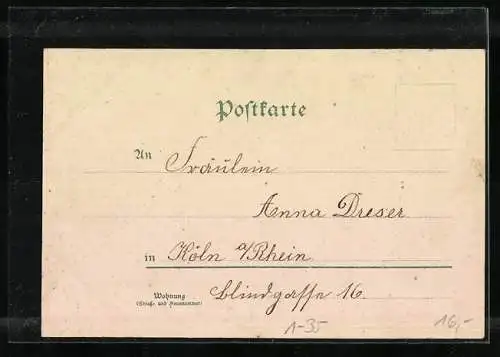 Postkarte
An Fräulein
Anna Dreser
in Köln a/Rhein
Wohnung
(Straße und Hausnummer)
Blindgasse 16.
1-35
16,-